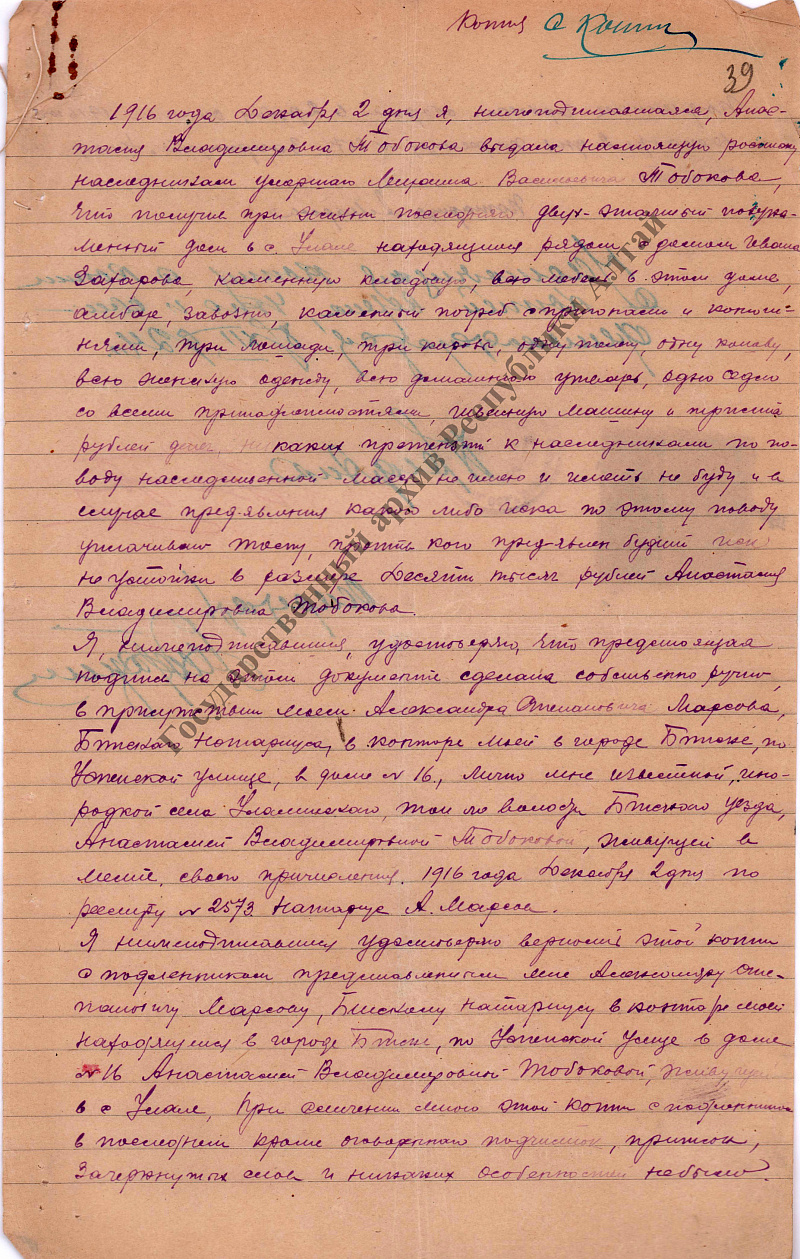 Копия с Копии
39
1916 года Декабря 2 дня я, нижеподписавшаяся, Анас-
тасия Владимировна Тобокова выдала настоящую росписку
наследникам умершаго Михаила Васильевича Тобокова,
что получив при жизни последняго двух-этажный полука-
менный дом в с. Улале находящийся рядом с домом Ивана
Захарова, каменную кладовую, всю мебель в этом доме,
амбар, завозню, каменный погреб с пригонами и конюш-
нями, три лошади, три коровы, одну
всю женскую одежду, всю домашнюю утварь, одно седло
со всеми принадлежностями, швейную машину и триста
рублей денег, никаких претензий к наследникам по по-
воду наследственной массы не имею и иметь не буду и в
случае пред-явления какого либо иска по этому поводу
уплачиваю тому, против кого пред-явлен будет иск
неустойки в размере Десяти тысяч рублей Анастасия
Владимировна Тобокова.
Я, нижеподписавшийся, удостоверяю, что предстоящая
подпись на этом документе сделана собственно ручно,
в присутствии моем Александра Степановича Марсова,
Бийскаго Нотариуса, в конторе моей в городе Бийске, по
Успенской улице, в доме № 16, лично мне известной, ино-
родкой села Улалинскаго, той же волости Бийскаго уезда,
Анастасией Владимировной Тобоковой, живущей в
месте своего причисления. 1916 года Декабря 2 дня по
реестру № 2573 Натариус А. Марсов.
Я нижеподписавшийся удостоверяю верность этой копии
с подленником представленным мне Александру Сте-
пановичу Марсову, Бийскому натариусу в конторе моей
находящейся в городе Бийске, по Успенской улице в доме
№ 16 Анастасией Владимировной Тобоковой, живущей
в с Улале, При сличении мною этой копии с подленником
в последнем кроме оговореннаго подчисток, приписок,
зачеркнутых слов и никаких особенностей небыло.
Государственный архив Республики Алтай